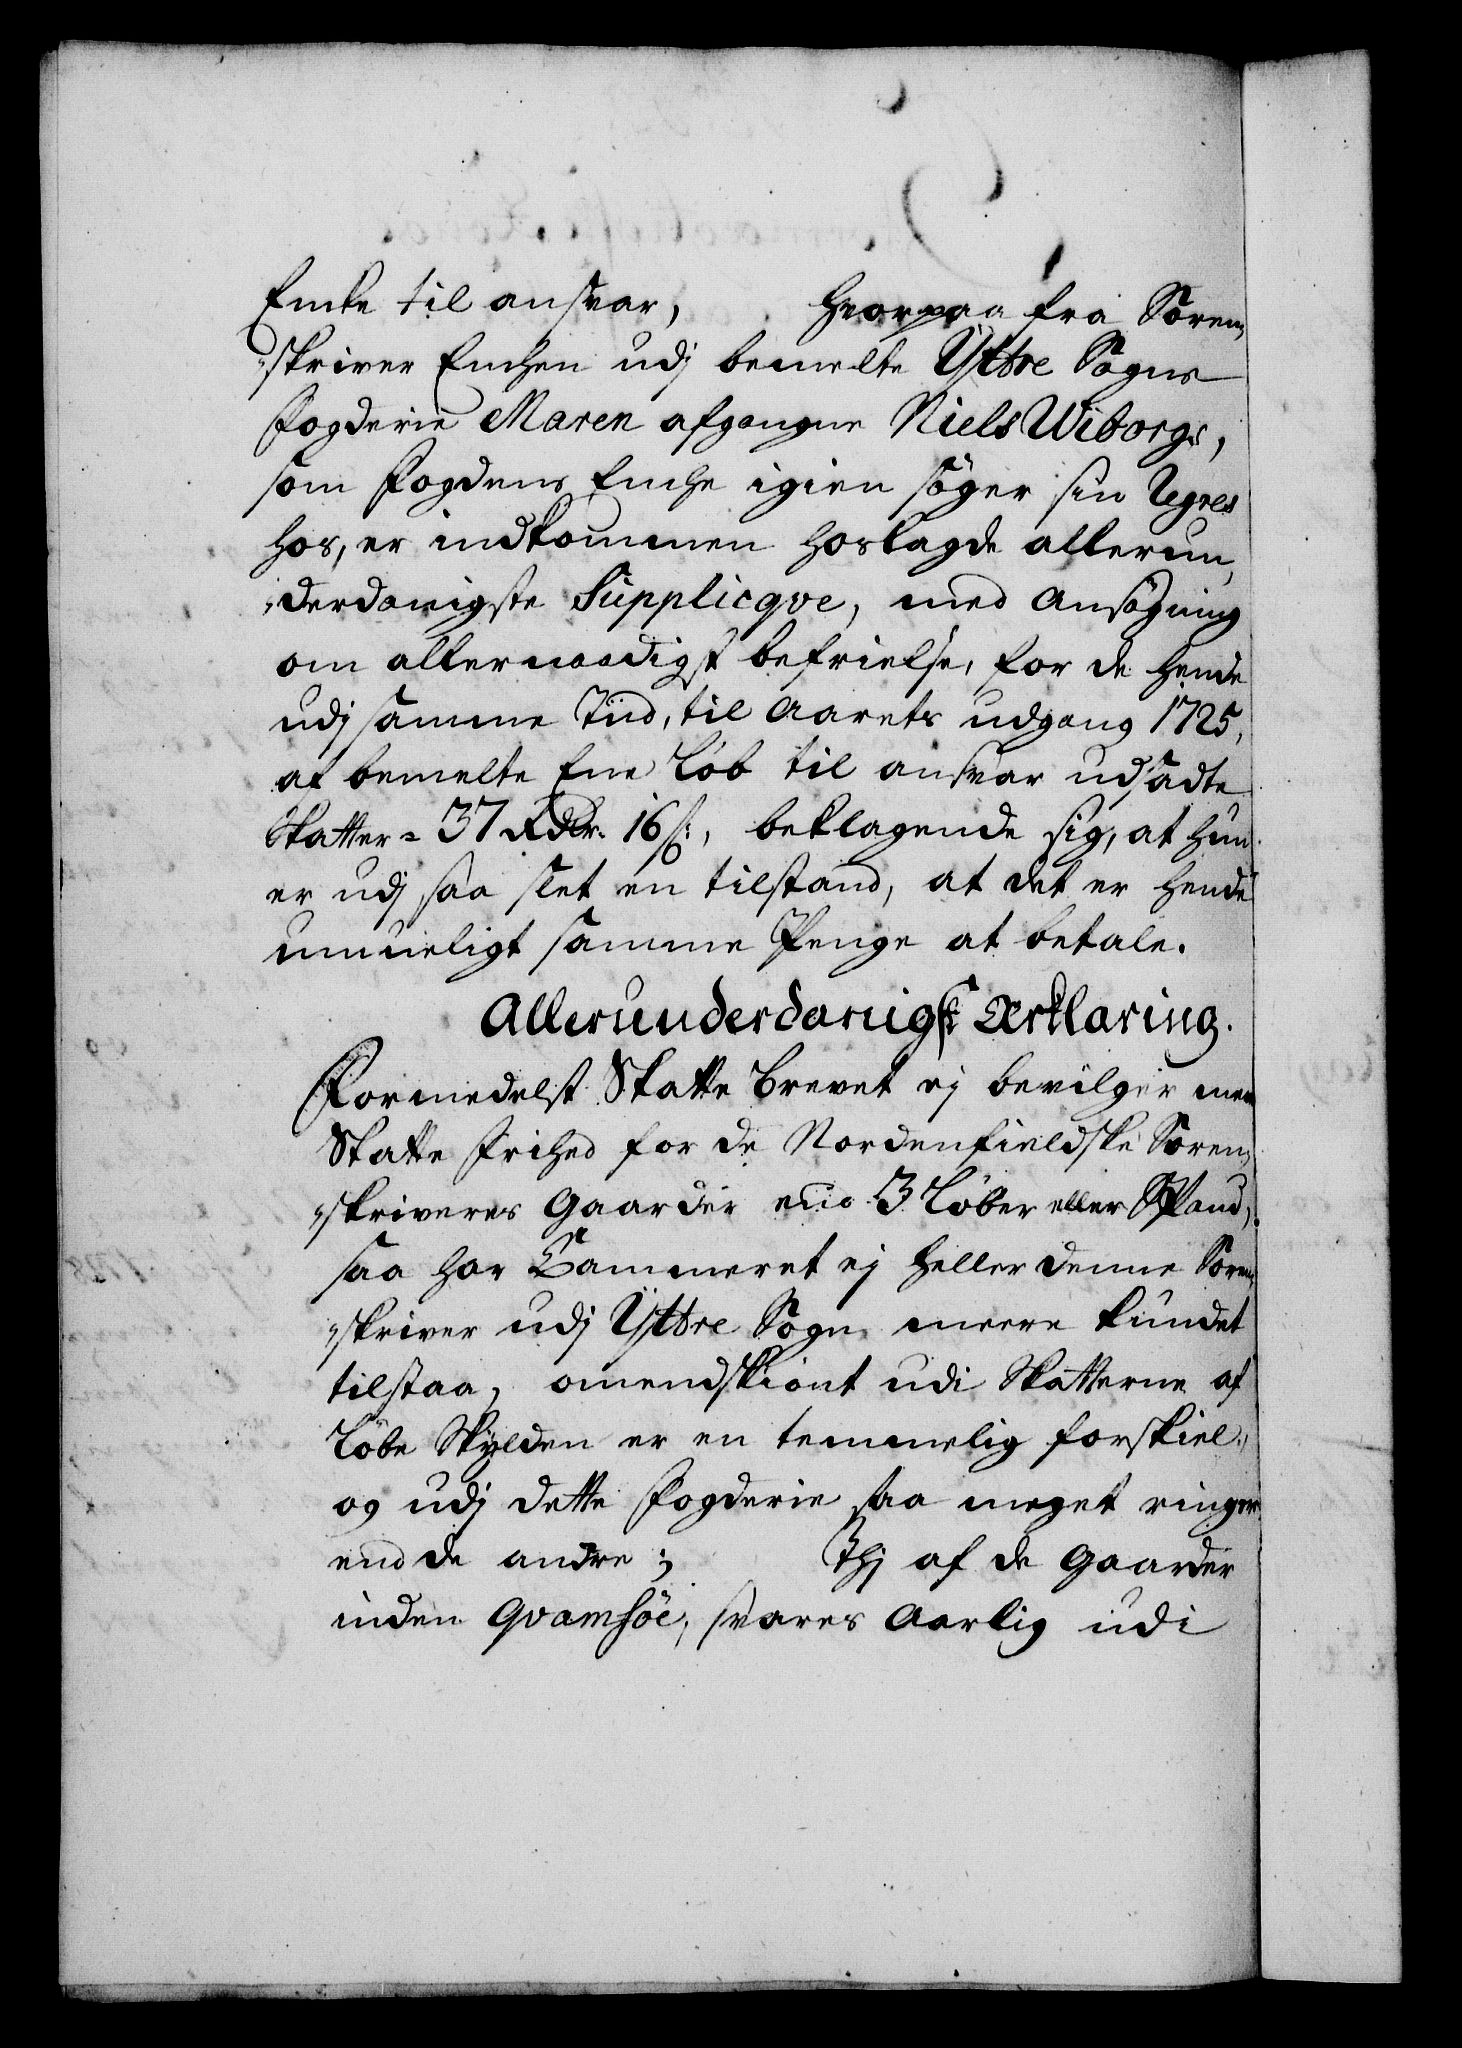 Encke til ansvar, Hvorpaa fra Soren„
„skriver Enchen udj bemelte Yttre Sogns
Fogderie Maren afgangne Niels Wiborgs,
som Fogdens Enche igien söger sin Regres
hos, er indkommen hoslagde allerun„
„derdanigste Supplicqve, med Ansögning
om allernaadigst befrielse, for de hende
udj samme Tiid, til Aarets udgang 1725,
af bemelte Ene Löb til ansvar udsadte
Skatter = 37 Rdlr. 16 s:, beklagende sig, at hun
er udj saa slet en tilstand, at det er hende
umueligt samme Penge at betale.
Allerunderdanigst Ærklaring.
Formedelst Skatte Brevet ej bevilger meer
Skatte frihed for de Nordenfieldske Soren„
„skriveres Gaarder end 3 Löber eller Spand,
saa har Cammeret ej heller denne Soren„
„skriver udj Yttre Sogn meere kundet
tilstaa, omendskiönt udi Skatterne af
Löbe Skylden er en temmelig forskiel,
og udj dette Fogderie saa meget ringer
end de andre; Thj af de Gaarder
inden Qvamsöe, svares Aarlig udi